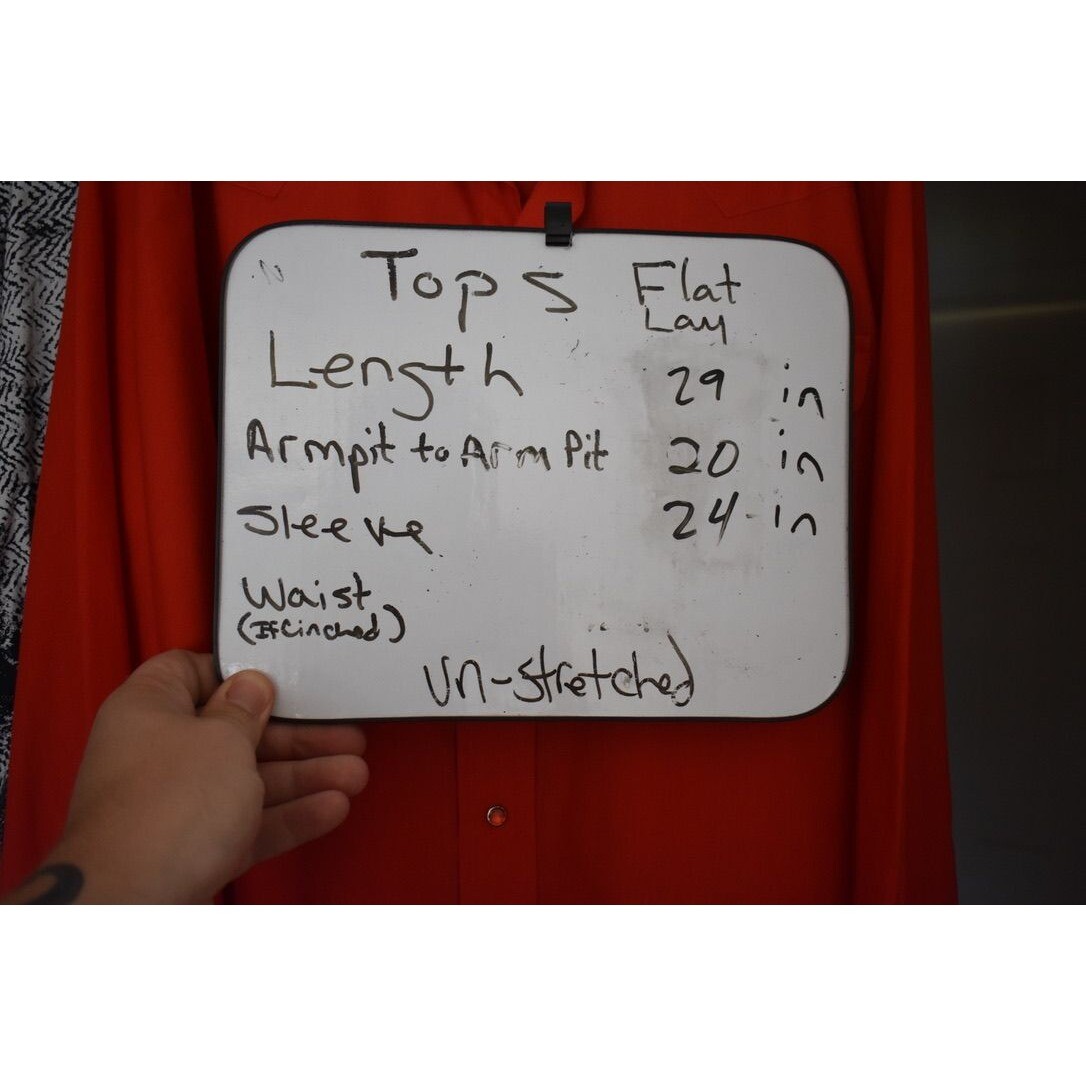 Tops Flat Lay
Length 29 in
Armpit to ArmPit 20 in
Sleeve 24 in
Waist
(If Cinched)
Un-stretched